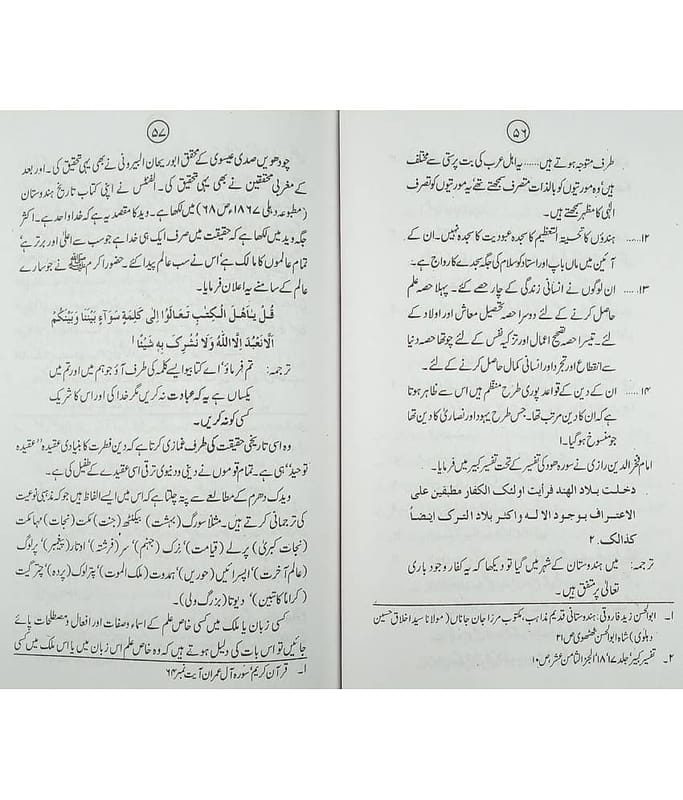 ۵۶
طرف متوجہ ہوتے ہیں...... یہ اہل عرب کی بت پرستی سے مختلف
ہیں، وہ مورتیوں کو بالذات متصرف سمجھتے تھے یہ مورتیوں کو تصرف
الٰہی کا مظہر سمجھتے ہیں۔
۱۲...... ہندؤں کا تحیتہ التعظیم کا سجدہ عبودیت کا سجدہ نہیں۔ ان کے
آئین میں ماں باپ اور استاد کو سلام کی جگہ سجدے کا رواج ہے۔
۱۳...... ان لوگوں نے انسانی زندگی کے چار حصے کئے۔ پہلا حصہ علم
حاصل کرنے کے لئے دوسرا حصہ تحصیل معاش اور اولاد کے
لئے۔ تیسرا حصہ تصحیح اعمال اور تزکیہ نفس کے لئے چوتھا حصہ دنیا
سے انقطاع اور تجرد اور انسانی کمال حاصل کرنے کے لئے۔
۱۴ ...... ان کے دین کے قواعد پوری طرح منظم ہیں اس سے ظاہر ہوتا
ہے کہ ان کا دین مرتب تھا۔ جس طرح یہود اور نصاریٰ کا دین تھا
جو منسوخ ہو گیا۔۱
امام فخر الدین رازی نے سورہ ھود کی تفسیر کے تحت تفسیر کبیر میں فرمایا۔
دخلت بلاد الہند فرأیت اولئک الکفار مطبقین علی
الاعتراف بوجود الالہ واکثر بلاد الترک ایضاً
کذالک۔۲
ترجمہ: میں ہندوستان کے شہر میں گیا تو دیکھا کہ یہ کفار وجود باری
تعالیٰ پر متفق ہیں۔
۱۔ ابوالحسن زید فاروقی: ہندوستانی قدیم مذاہب، مکتوب مرزا جان جاناں (مولانا سید اخلاق حسین
دہلوی) شاہ ابوالحسن ص ۲۱
۲۔ تفسیر کبیر، جلد ۱۷، ۱۸، الجزء الثامن عشر، ص ۱۰
۵۷
چودھویں صدی عیسوی کے محقق ابوریحان البیرونی نے بھی یہی تحقیق کی۔ اور بعد
کے مغربی محققین نے بھی یہی تحقیق کی۔ الفنٹس نے اپنی کتاب تاریخ ہندوستان
(مطبوعہ دہلی ۱۸۶۷ء ص ۶۸) میں لکھا ہے۔ وید کا مقصد یہ ہے کہ خدا واحد ہے۔ اکثر
جگہ وید میں لکھا ہے کہ حقیقت میں صرف ایک ہی خدا ہے جو سب سے اعلیٰ اور برتر ہے،
تمام عالموں کا مالک ہے، اس نے سب عالم پیدا کئے۔ حضور اکرم ﷺ نے جو سارے
عالم کے سامنے یہ اعلان فرمایا۔
قُلْ یٰاَھْلَ الْکِتٰبِ تَعَالَوْا اِلٰی کَلِمَۃٍ سَوَآءٍ بَیْنَنَا وَبَیْنَکُمْ
اَلَّا نَعْبُدَ اِلَّا اللّٰہَ وَلَا نُشْرِکَ بِہٖ شَیْئًا۱
ترجمہ: تم فرماؤ، اے کتابیو ایسے کلمہ کی طرف آؤ جو ہم میں اور تم میں
یکساں ہے یہ کہ عبادت نہ کریں مگر خدا کی اور اس کا شریک
کسی کو نہ کریں۔
وہ اسی تاریخی حقیقت کی طرف غمازی کرتا ہے کہ دین فطرت کا بنیادی عقیدہ ”عقیدہ
توحید“ ہی ہے۔ تمام قوموں نے دینی و دنیوی ترقی اسی عقیدے کے طفیل کی ہے۔
ویدک دھرم کے مطالعے سے پتہ چلتا ہے کہ اس میں ایسے الفاظ ہیں جو کہ مذہبی نوعیت
کی ترجمانی کرتے ہیں۔ مثلاً سورگ (بہشت) بیکنٹھ (جنت) مکت (نجات) مہامکت
(نجات کبریٰ) پرلے (قیامت)، نرک (جہنم)، سر (فرشتہ)، اوتار (پیغمبر)، پرلوک
(عالم آخرت)، اپسرائیں (حوریں)، ہمدوت (ملک الموت)، پتر لوک (پردہ)، چتر گپت
(کراماً کاتبین)، دیوتا (بزرگ ولی)۔
کسی زبان یا ملک میں کسی خاص علم کے اسماء و صفات اور افعال و مصطلحات پائے
جائیں تو اس بات کی دلیل ہوتے ہیں کہ وہ خاص علم اس زبان میں یا اس ملک میں کسی
۱۔ قرآن کریم، سورہ آل عمران آیت نمبر ۶۴